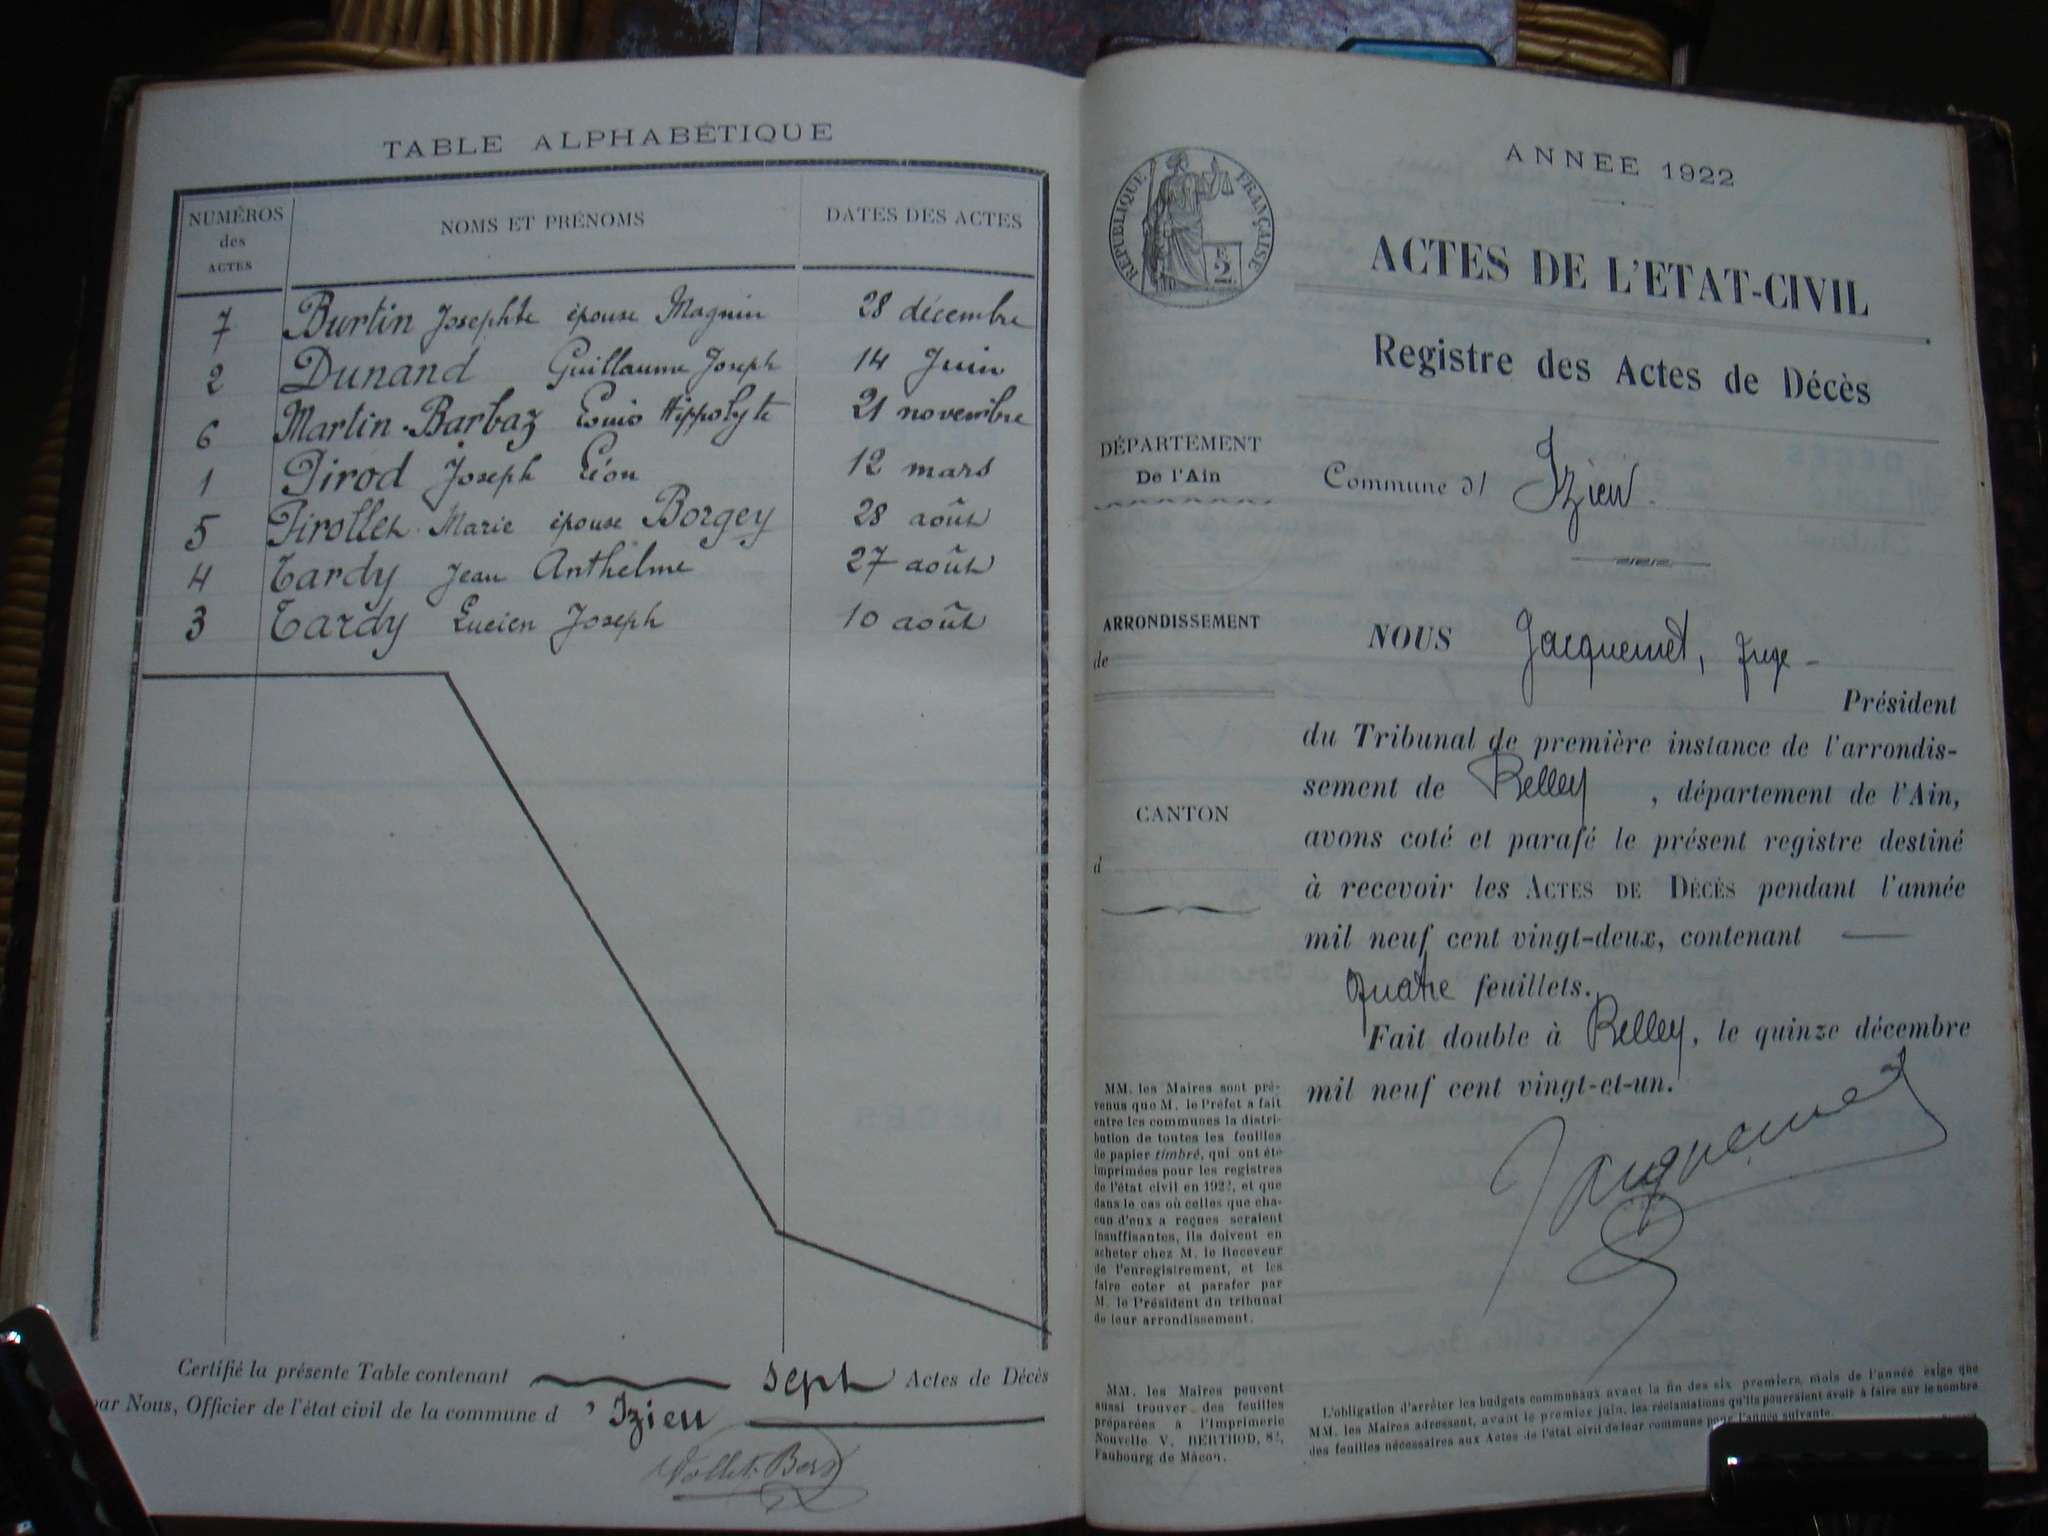 TABLE ALPHABÉTIQUE
NUMÉROS des ACTES NOMS ET PRÉNOMS DATES DES ACTES
7 Burtin Josephte épouse Magnin 28 décembre
2 Dunand Guillaume Joseph 14 Juin
6 Martin-Barbaz Louis Hippolyte 21 novembre
1 Pirod Joseph Léon 12 mars
5 Pirollet Marie épouse Borgey 28 août
4 Tardy Jean Anthelme 27 août
3 Tardy Lucien Joseph 10 août
Certifié la présente Table contenant sept Actes de Décès
par Nous, Officier de l'état civil de la commune d'Izieu
ANNEE 1922
RÉPUBLIQUE FRANÇAISE
2
ACTES DE L'ETAT-CIVIL
Registre des Actes de Décès
DÉPARTEMENT
De l'Ain
Commune d' Izieu.
ARRONDISSEMENT
de
NOUS Jacquemet, juge
Président
du Tribunal de première instance de l'arrondis-
sement de Belley, département de l'Ain,
CANTON
d
avons coté et parafé le présent registre destiné
à recevoir les ACTES DE DÉCÈS pendant l'année
mil neuf cent vingt-deux, contenant
quatre feuillets.
Fait double à Belley, le quinze décembre
mil neuf cent vingt-et-un.
Jacquemet
MM. les Maires sont pré-
venus que M. le Préfet a fait
entre les communes la distri-
bution de toutes les feuilles
de papier timbré, qui ont été
imprimées pour les registres
de l'état civil en 1922, et que
dans le cas où celles que cha-
cun d'eux a reçues seraient
insuffisantes, ils doivent en
acheter chez M. le Receveur
de l'enregistrement, et les
faire coter et parafer par
M. le Président du tribunal
de leur arrondissement.
MM. les Maires peuvent
aussi trouver des feuilles
préparées à l'Imprimerie
Nouvelle V. BERTHOD, 82,
Faubourg de Mâcon.
L'obligation d'arrêter les budgets communaux avant la fin des six premiers mois de l'année exige que
MM. les Maires adressent, avant le premier juin, les réclamations qu'ils pourraient avoir à faire sur le nombre
des feuilles nécessaires aux Actes de l'état civil de leur commune pour l'année suivante.